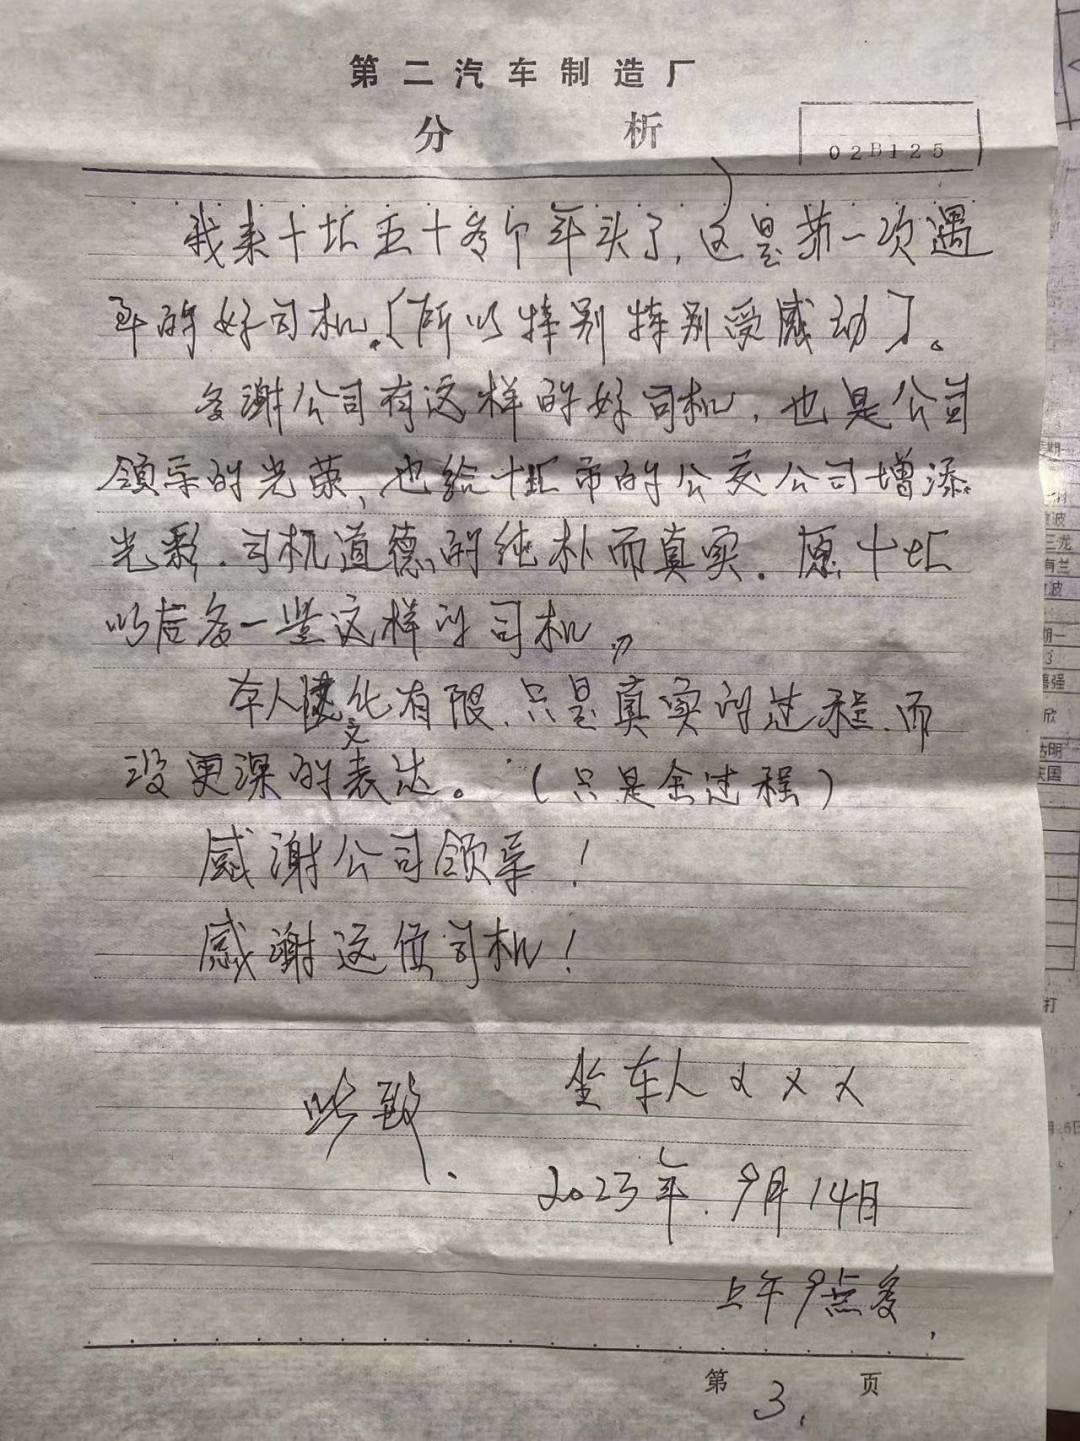 第二汽车制造厂
分析
02B125
我来十堰五十多个年头了,这是第一次遇
到的好司机。〔所以特别特别受感动〕。
多谢公司有这样的好司机,也是公司
领导的光荣,也给十堰市的公交公司增添
光彩.司机道德的纯朴而真实.愿十堰
以后多一些这样的司机。
本人文化有限.只是真实的过程.而
没更深的表达。(只是全过程)
感谢公司领导!
感谢这位司机!
坐车人 x x x
此致.
2023年.9月14日
上午9点多,
第3.页